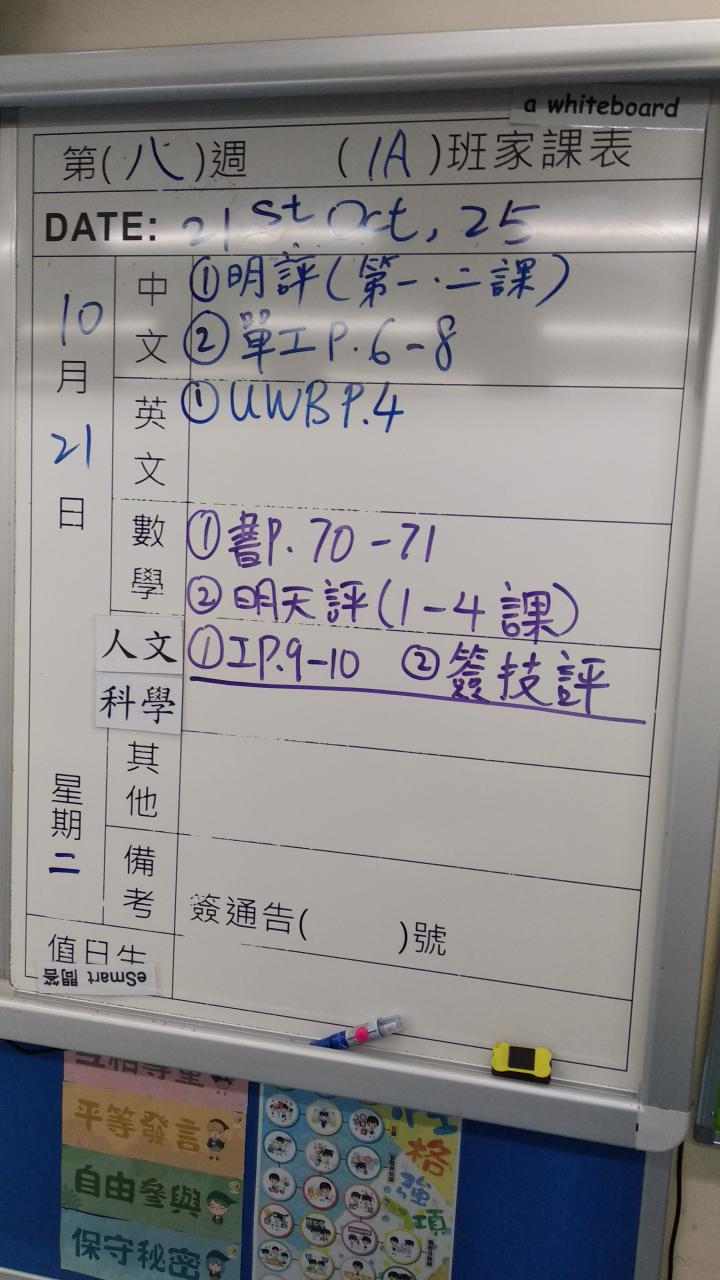 a whiteboard
第(八)週 (1A)班家課表
DATE: 21st Oct, 25
10月21日
星期二
中文
①明評(第一.二課)
②單工P.6-8
英文
①UWB P.4
數學
①書P.70-71
②明天評(1-4課)
人文
科學
①工P.9-10 ②簽技評
其他
備考
簽通告( )號
值日生
eSmart 問答
互相尊重
平等發言
自由參與
保守秘密
性格強項